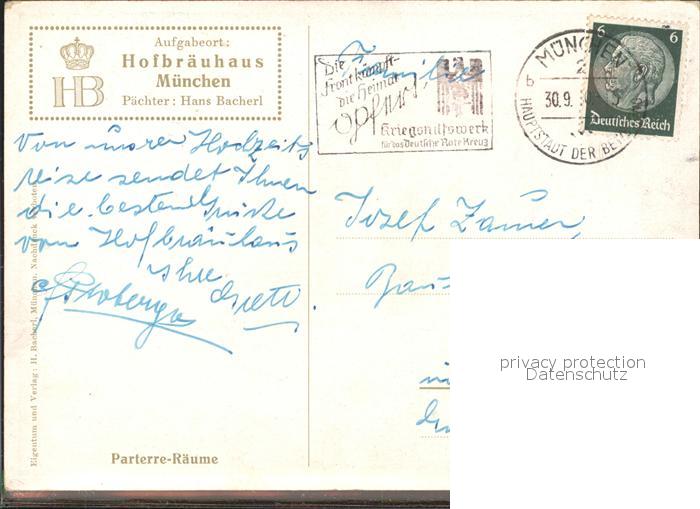 Aufgabeort:
HB
Hofbräuhaus
München
Pächter: Hans Bacherl
Die
Front kämpft-
die Heimat
opfert!
Kriegshilfswerk
für das Deutsche Rote Kreuz
MÜNCHEN
2
b
30.9.
HAUPTSTADT DER BEWE
6 6
Deutsches Reich
Familie
Von unsrer Hochzeits
reise sendet Ihnen
die besten Grüße
vom Hofbräuhaus
Ihre
Josef
privacy protection
Datenschutz
Eigentum und Verlag: H. Bacherl, München. Nachdruck verboten
Parterre-Räume